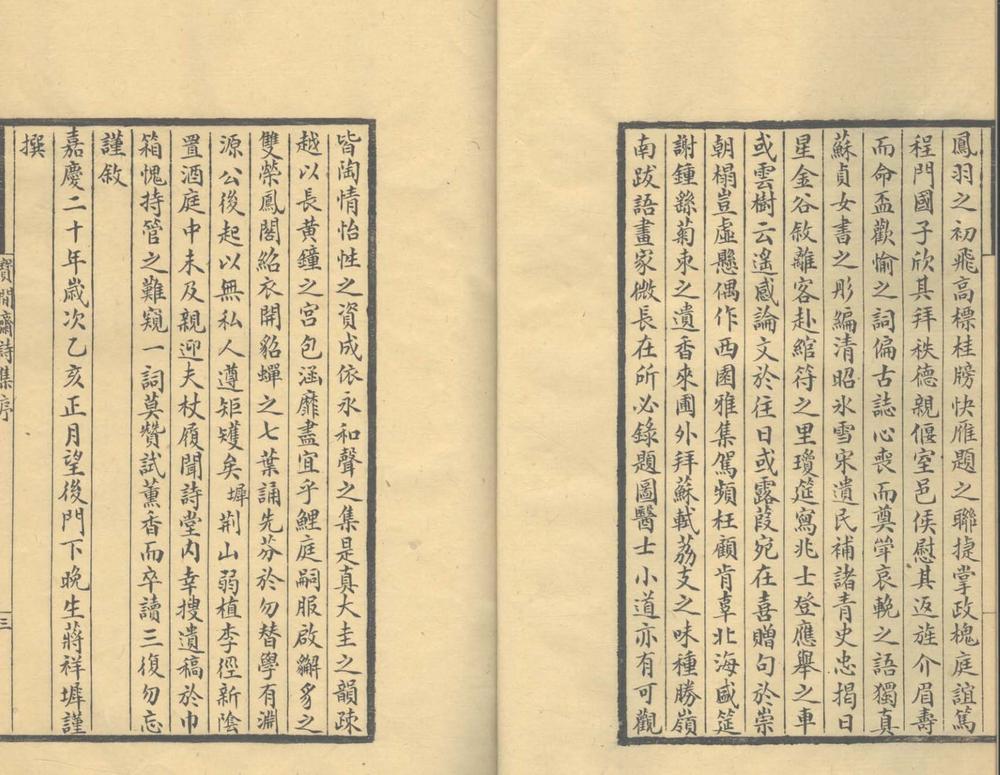 鳳羽之初飛高標桂牓快雁題之聯捷掌政槐庭誼篤
程門國子欣其拜秩德親偃室邑侯慰其返旌介眉壽
而命盃歡愉之詞偏古誌心喪而奠斝哀輓之語獨真
蘇貞女書之彤編清昭氷雪宋遺民補諸青史忠揭日
星金谷敘離客赴綰符之里瓊筵寫兆士登應舉之車
或雲樹云遙感論文於往日或露葭宛在喜贈句於崇
朝榻豈虛懸偶作西園雅集駕頻枉顧肯辜北海盛筵
謝鍾繇菊朿之遺香來圃外拜蘇軾荔支之味種勝嶺
南跋語畫家微長在所必錄題圖醫士小道亦有可觀
皆陶情怡性之資成依永和聲之集是真大圭之韻疎
越以長黃鐘之宮包涵靡盡宜乎鯉庭嗣服啟獬豸之
雙榮鳳閣紹衣開貂蟬之七葉誦先芬於勿替學有淵
源公後起以無私人遵矩矱矣墀荆山弱植李徑新陰
置酒庭中未及親迎夫杖履聞詩堂內幸搜遺稿於巾
箱愧持管之難窺一詞莫贊試薰香而卒讀三復勿忘
謹敘
嘉慶二十年歲次乙亥正月望後門下晚生蔣祥墀謹
撰
寶閒齋詩集序
三